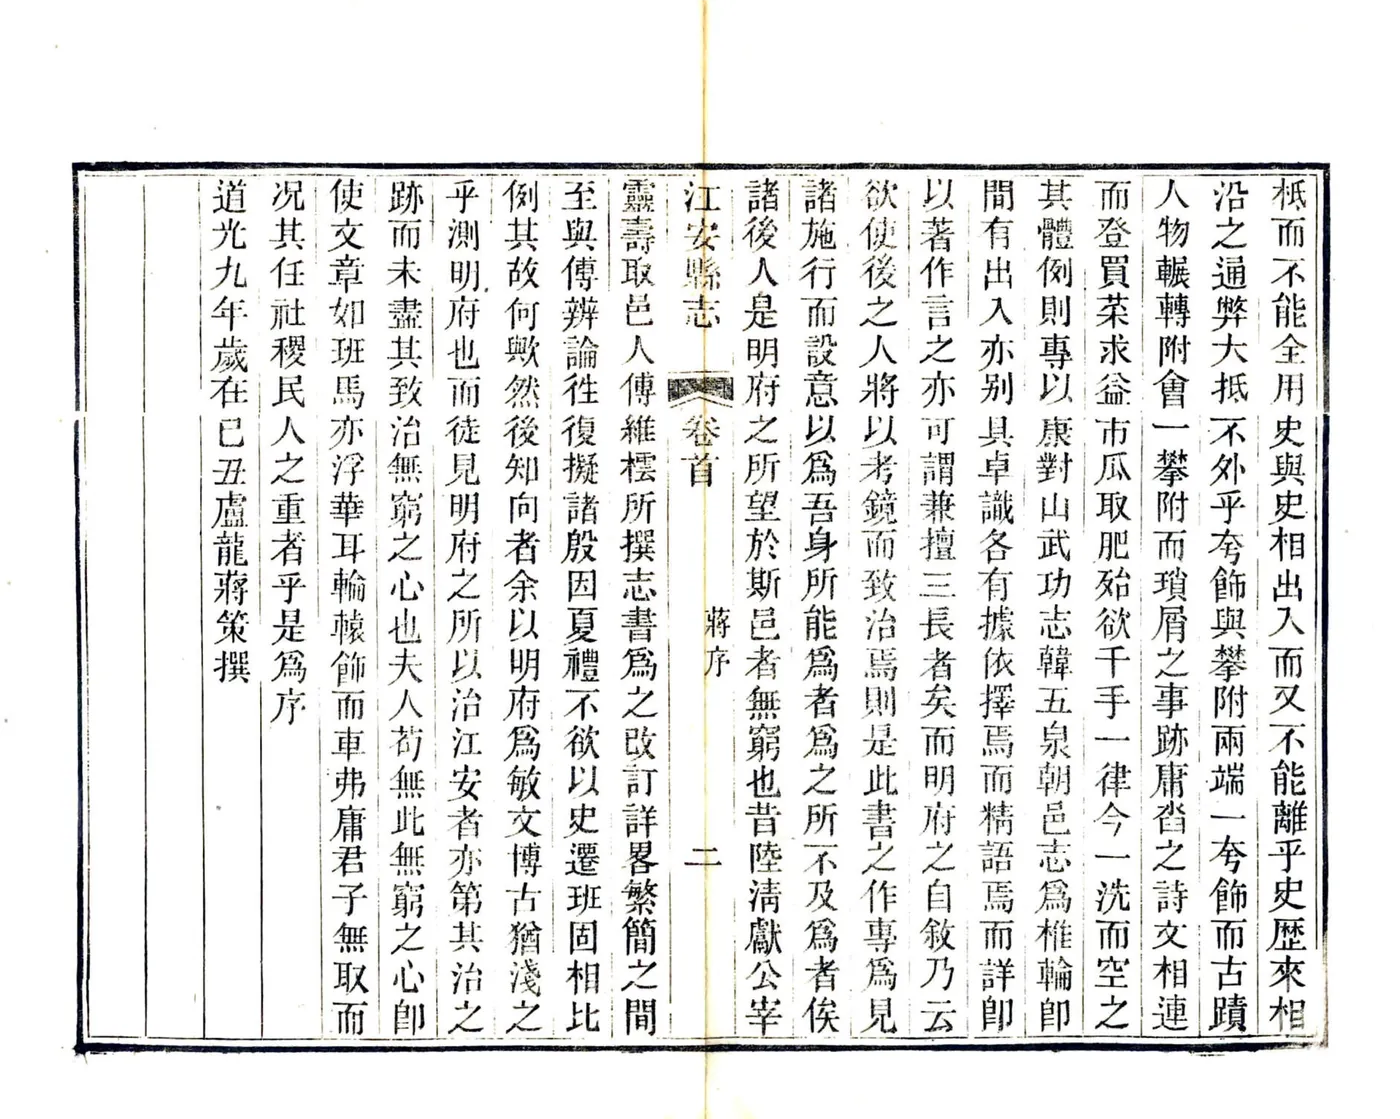 柢而不能全用史與史相出入而又不能離乎史歴來相
沿之通弊大抵不外乎夸飾與攀附兩端一夸飾而古蹟
人物輾轉附會一攀附而瑣屑之事跡庸沓之詩文相連
而登買菜求益市瓜取肥殆欲千手一律今一洗而空之
其體例則專以康對山武功志韓五泉朝邑志爲椎輪卽
間有出入亦别具卓識各有據依擇焉而精語焉而詳卽
以著作言之亦可謂兼擅三長者矣而明府之自敘乃云
欲使後之人將以考鏡而致治焉則是此書之作專爲見
諸施行而設意以爲吾身所能爲者爲之所不及爲者俟
諸後人是明府之所望於斯邑者無窮也昔陸淸獻公宰
江安縣志 卷首 蔣序 二
靈壽取邑人傅維橒所撰志書爲之改訂詳畧繁簡之間
至與傅辨論徃復擬諸殷因夏禮不欲以史遷班固相比
例其故何歟然後知向者余以明府爲敏文博古猶淺之
乎測明府也而徒見明府之所以治江安者亦第其治之
跡而未盡其致治無窮之心也夫人苟無此無窮之心卽
使文章如班馬亦浮華耳輪轅飾而車弗庸君子無取而
况其任社稷民人之重者乎是爲序
道光九年歲在已丑盧龍蔣策撰